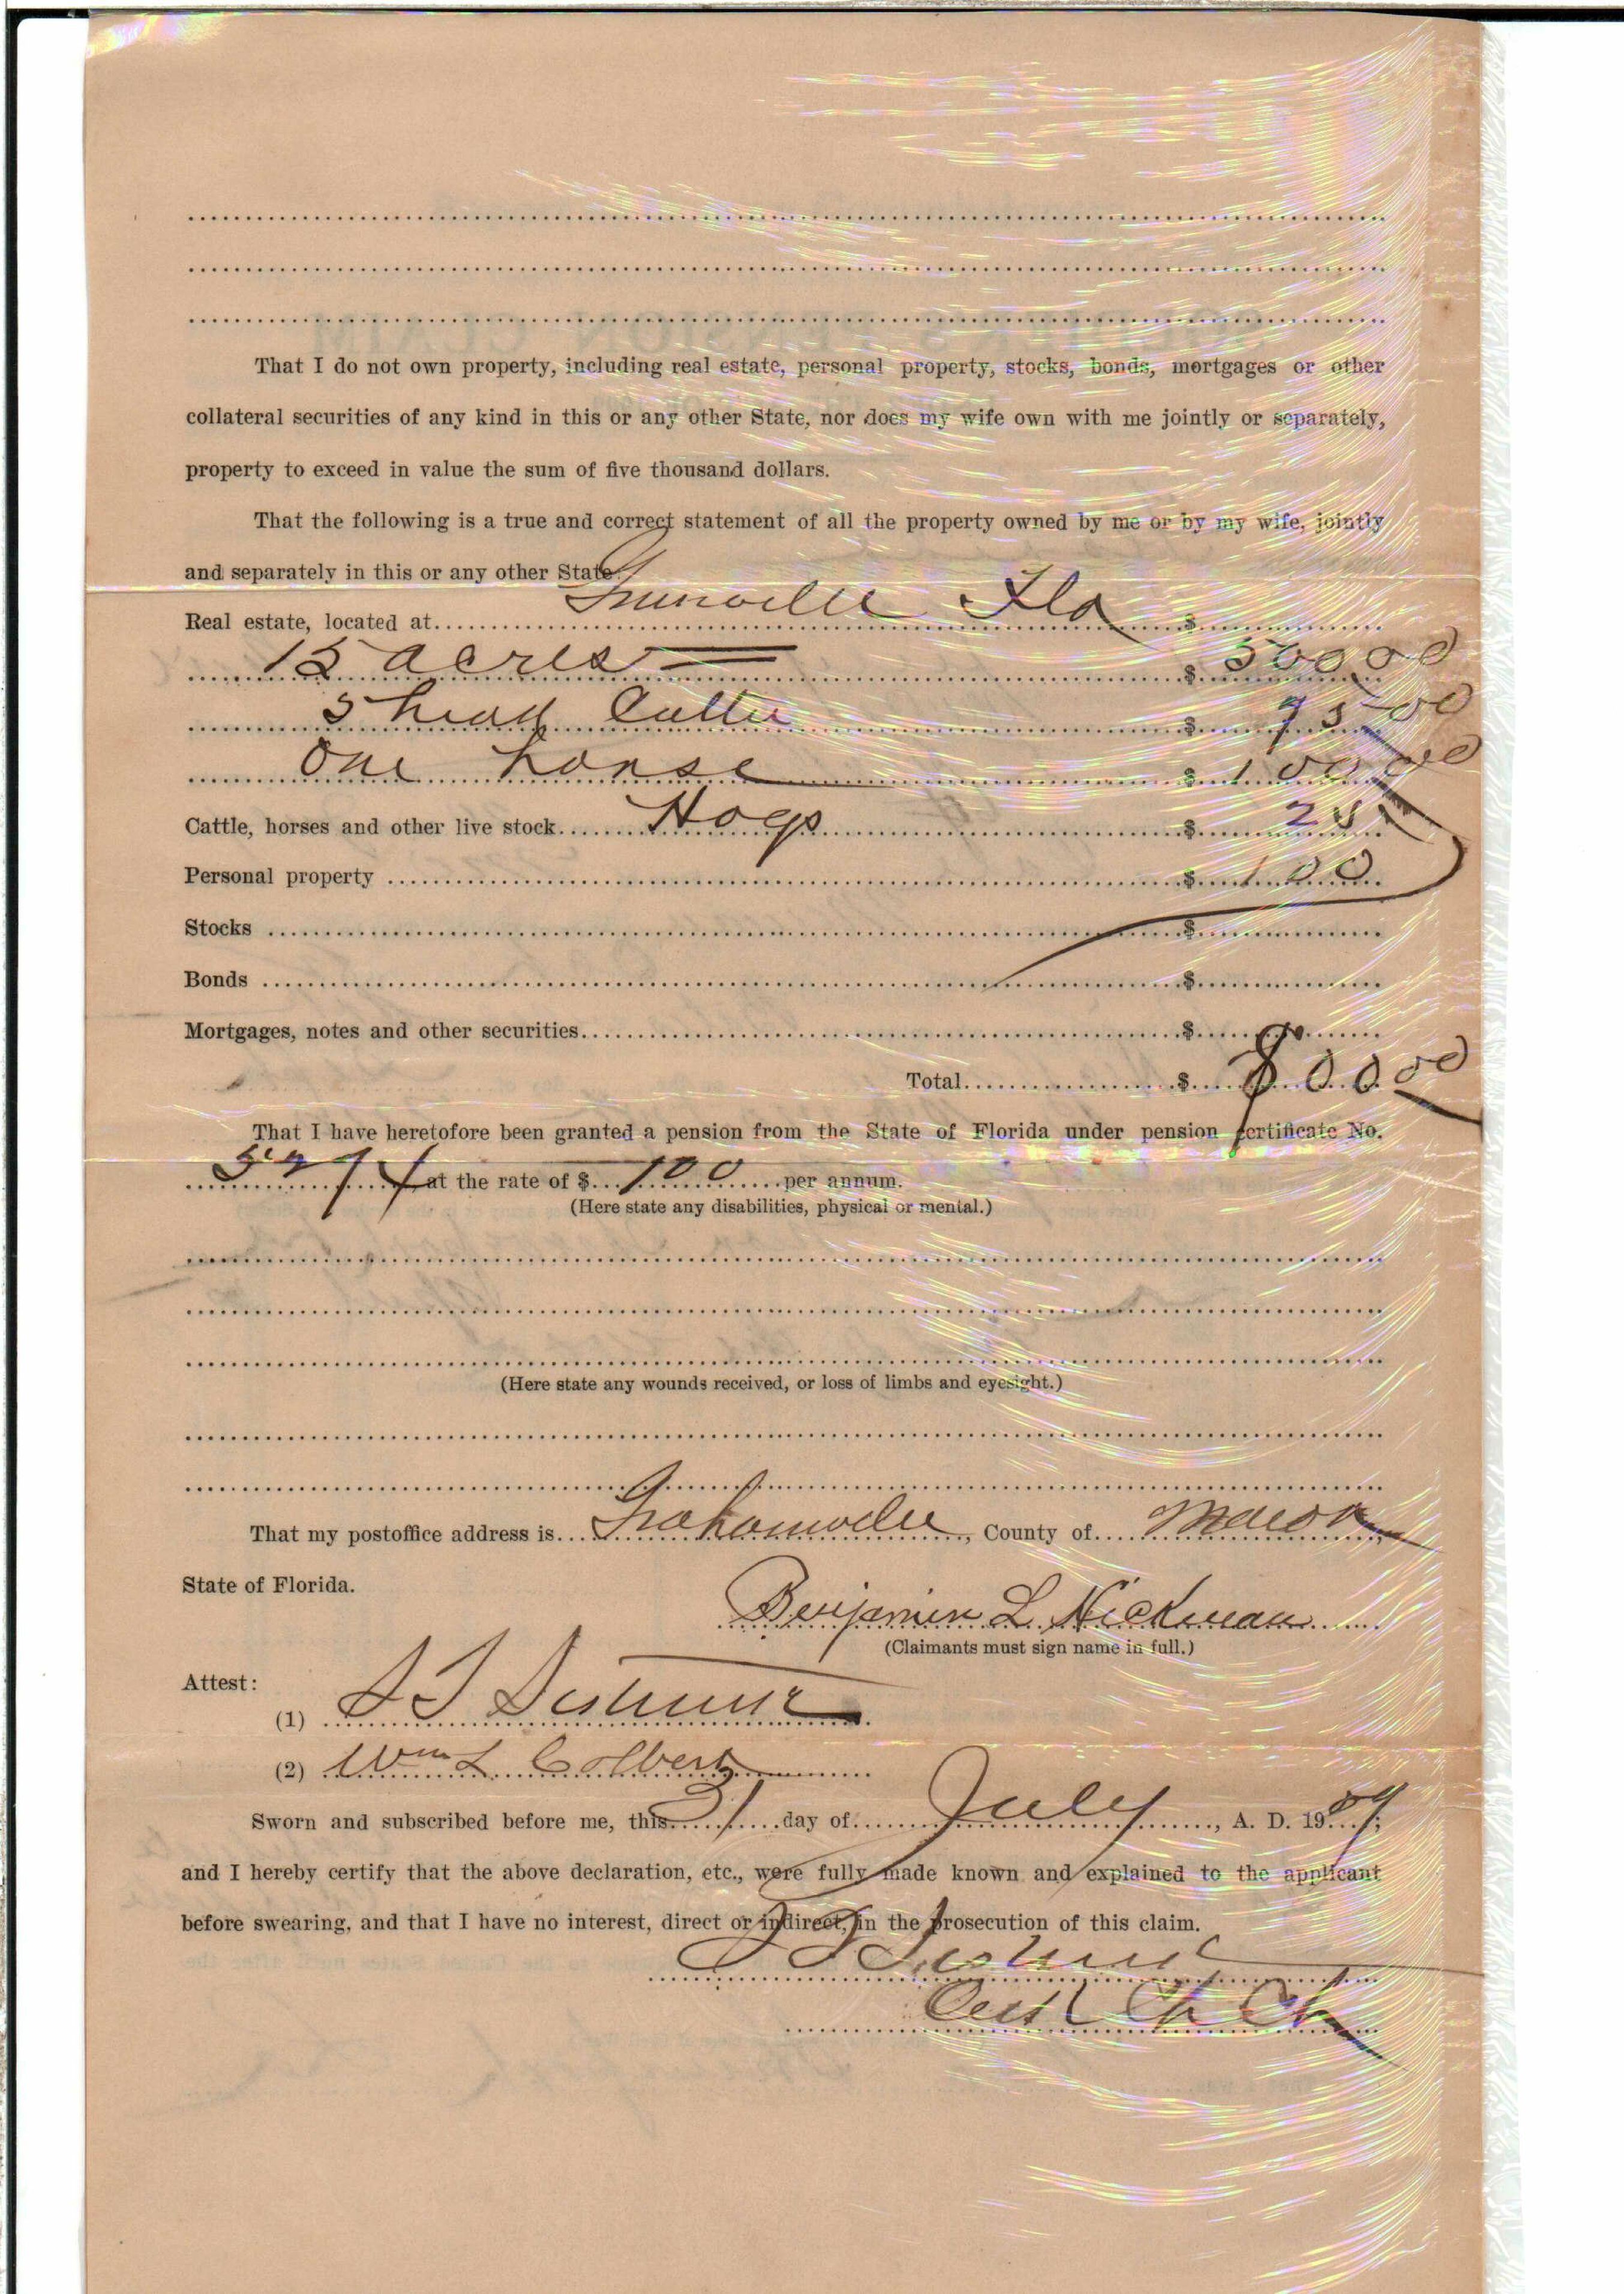 That I do not own property, including real estate, personal property, stocks, bonds, mortgages or other
collateral securities of any kind in this or any other State, nor does my wife own with me jointly or separately,
property to exceed in value the sum of five thousand dollars.
That the following is a true and correct statement of all the property owned by me or by my wife, jointly
and separately in this or any other State.
Real estate, located at Fla $
15 acres $ 500.00
5 head Cattle $ 75.00
One horse $ 100.00
Cattle, horses and other live stock Hogs $ 25
Personal property $ 100
Stocks $
Bonds $
Mortgages, notes and other securities $
Total $ 800.00
That I have heretofore been granted a pension from the State of Florida under pension certificate No.
at the rate of $ 100 per annum.
(Here state any disabilities, physical or mental.)
(Here state any wounds received, or loss of limbs and eyesight.)
That my postoffice address is Grahamville, County of Marion,
State of Florida.
Benjamin L Hickman
(Claimants must sign name in full.)
Attest:
(1)
(2) Wm L Colbert
Sworn and subscribed before me, this 31 day of July, A. D. 1909;
and I hereby certify that the above declaration, etc., were fully made known and explained to the applicant
before swearing, and that I have no interest, direct or indirect, in the prosecution of this claim.